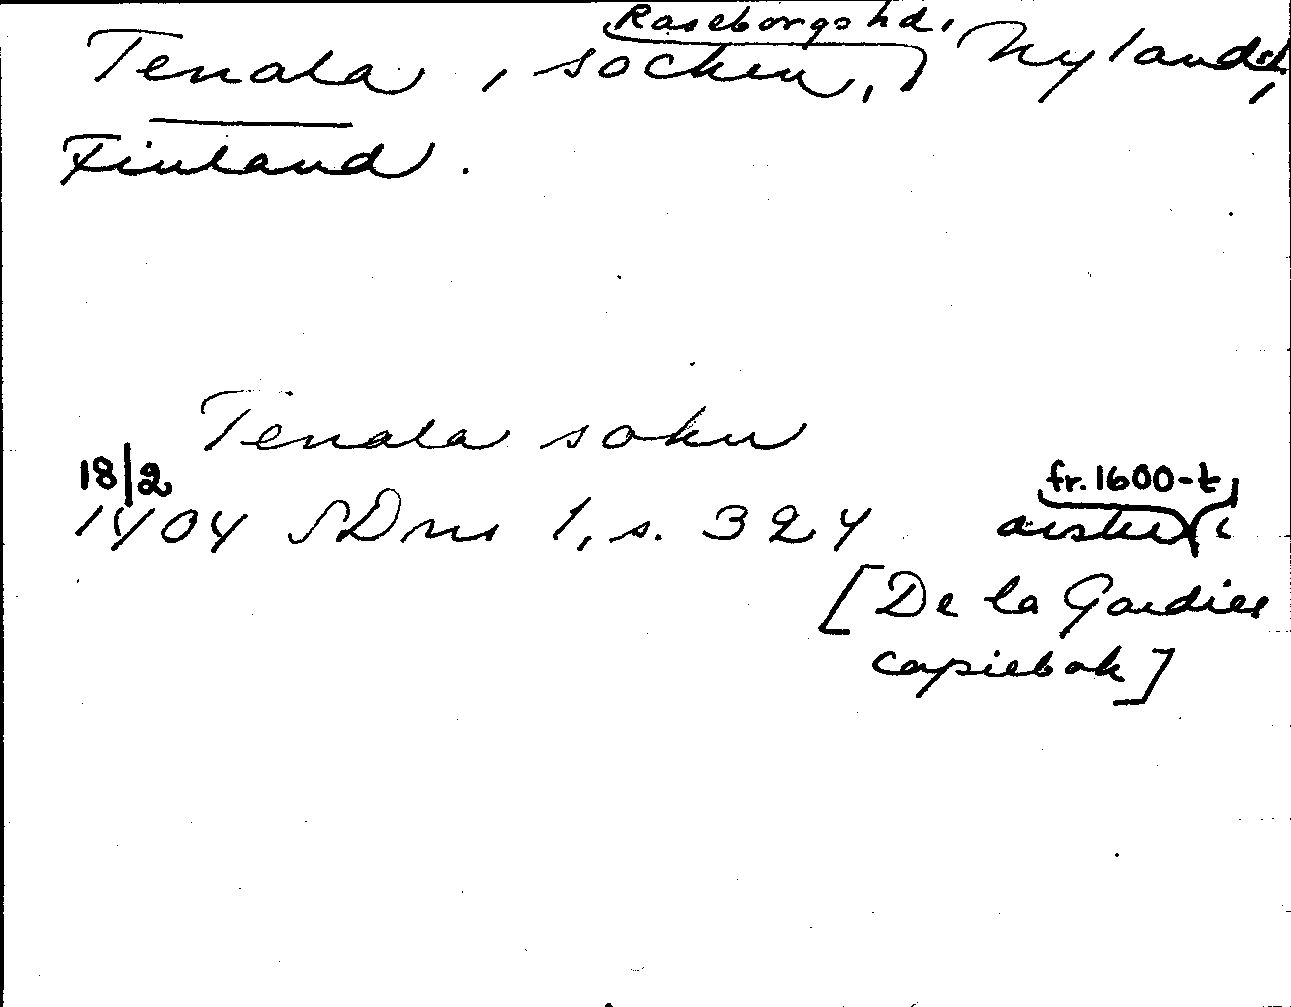 Raseborgs hd,
Tenala, socken, Nyland,
Finland.
Tenala sokn
18/2
1404 SDns 1, s. 324
fr. 1600-t
avskr i
[De la Gardies
copiebok]